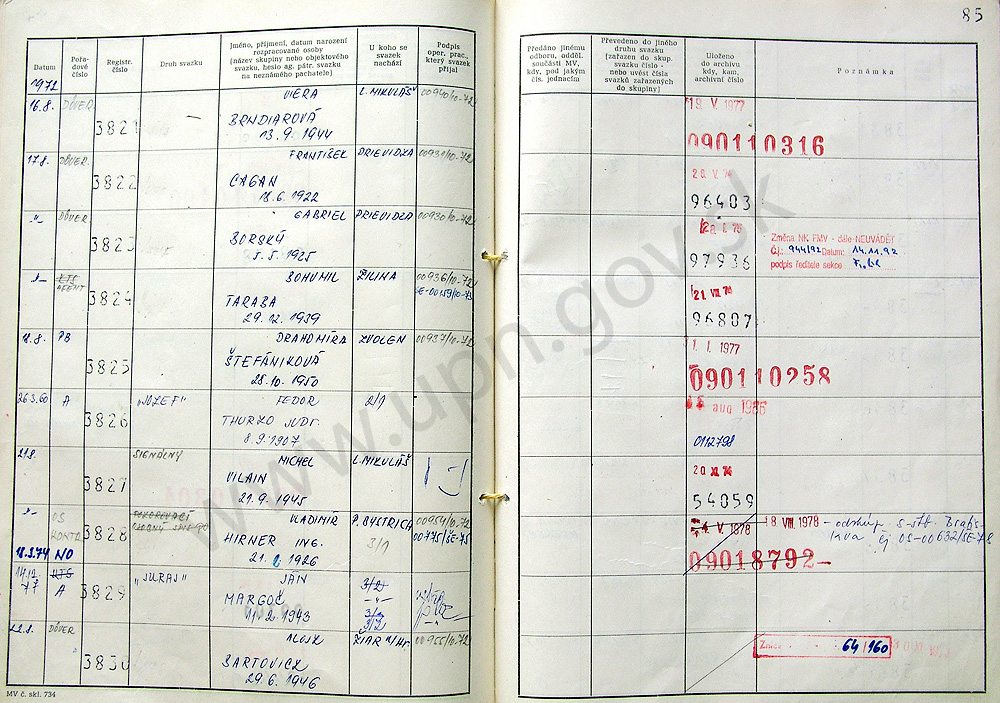 85
Datum
Pořa-
dové
číslo
Registr.
číslo
Druh svazku
Jméno, příjmení, datum narození
rozpracované osoby
(název skupiny nebo objektového
svazku, heslo ag. pátr. svazku
na neznámého pachatele)
U koho se
svazek
nachází
Podpis
oper. prac.,
který svazek
přijal
Předáno jinému
odboru, odděl.
součásti MV,
kdy, pod jakým
čís. jednacím
Převedeno do jiného
druhu svazku
(zařazen do skup.
svazku číslo -
nebo uvést čísla
svazků zařazených
do skupiny)
Uloženo
do archivu
kdy, kam,
archivní číslo
Poznámka
1972
16.8. DÔVER. 3821 –
VIERA
BRNDIAROVÁ
13.9.1944
L. MIKULÁŠ 00940/10-72
V. 1977
090110316
17.8. DÔVER. 3822
FRANTIŠEK
CAGAN
18.6.1922
PRIEVIDZA 00931/10-72
96403
-"- DÔVER 3823
GABRIEL
BORSKÝ
5.5.1925
PRIEVIDZA 00930/10-72
97936
Změna NK FMV - dále NEUVÁDĚT
Č.j.: 944/92 Datum: 14.11.92
podpis ředitele sekce
-"- KTS
AGENT
3824
BOHUMIL
TARABA
29.12.1939
ŽILINA 00936/10-72
SE-00159/10-75
21. VIII. 74
96807
18.8. PB 3825
DRAHOMÍRA
ŠTEFÁNIKOVÁ
28.10.1950
ZVOLEN 00937/10-72
1. I. 1977
090110258
26.3.60 A 3826
"JOZEF"
FEDOR
THURZO JUDr.
8.9.1907
2/1
aug 1986
0112798
21.8. 3827
SIGNÁLNY
MICHEL
VILAIN
21.9.1945
L. MIKULÁŠ
20. XI. 74
54059
-"- OS
KONTR.
18.3.74 NO
3828
VLADIMÍR
HIRNER ING.
1926
P. BYSTRICA
3/1
00954/10-72
00775/SE-75
V. 1978
8 VIII. 1978
09018792
14.12.
77
KTS
A
3829
"JURAJ"
JÁN
MARGOČ
11.2.1943
3/2
-"-
3/2
22.8. DÔVER 3830
ALOJZ
BARTOVICZ
29.6.1946
ŽIAR n/Hr. 00955/10-72
64/160
MV č. skl. 734
www.upn.gov.sk